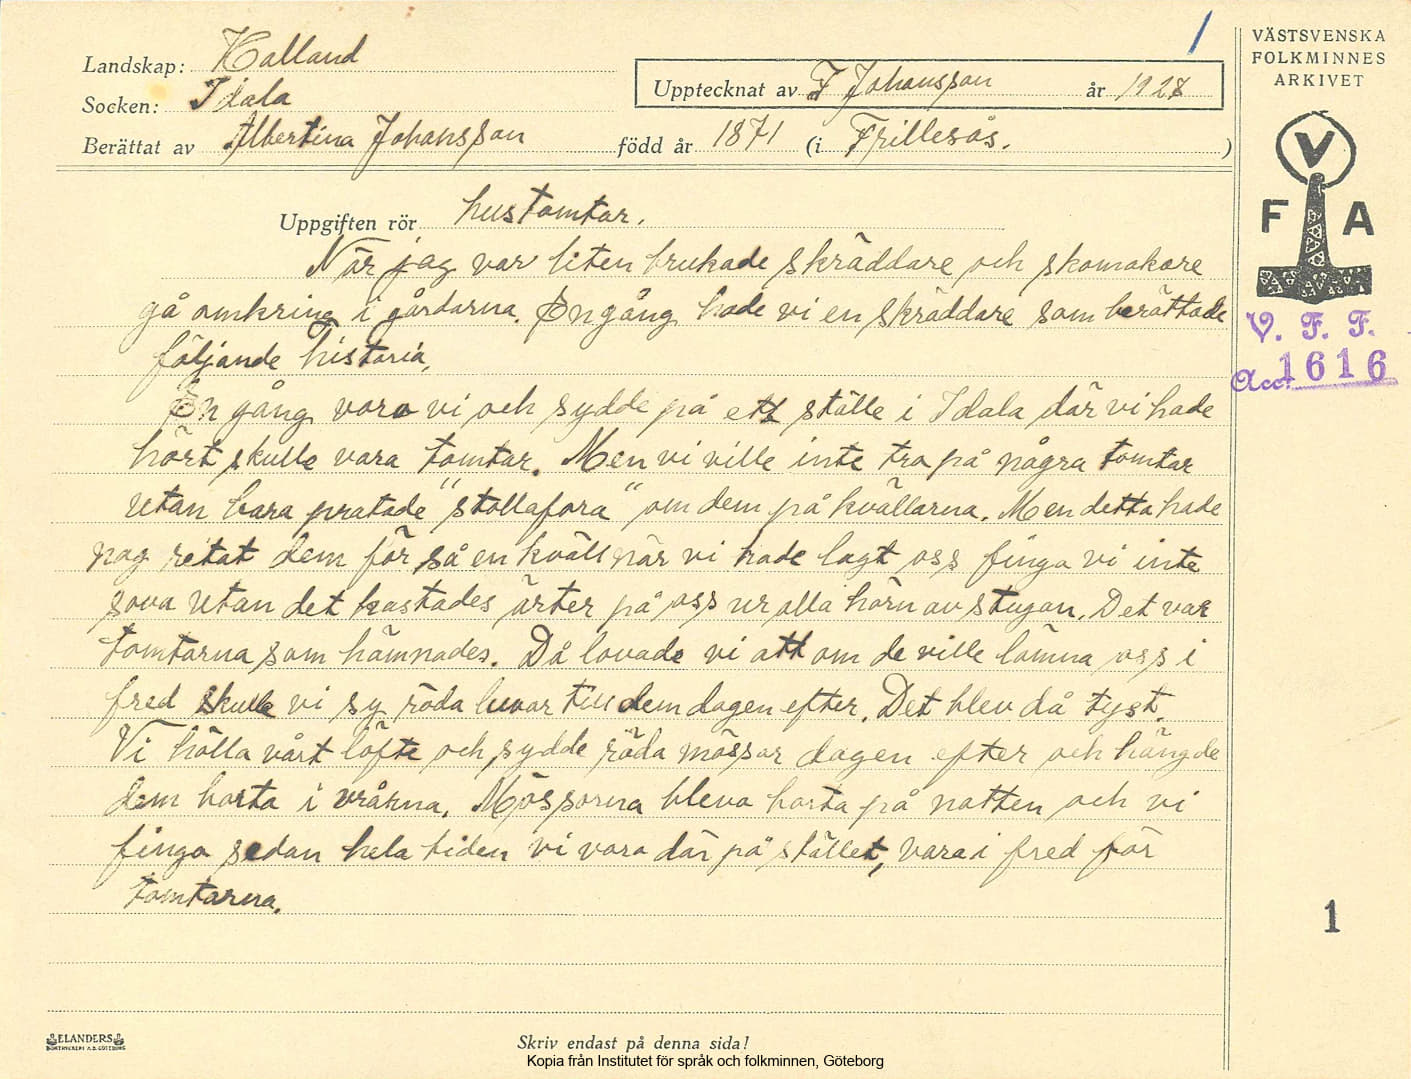 1
Landskap: Halland
Socken: Idala
Upptecknat av F Johansson år 1928
Berättat av Albertina Johansson född år 1871 (i Frillesås.)
VÄSTSVENSKA
FOLKMINNES
ARKIVET
V
F A
V. F. F.
Acc: 1616
Uppgiften rör hustomtar.
När jag var liten brukade skräddare och skomakare
gå omkring i gårdarna. En gång hade vi en skräddare som berättade
följande historia,
En gång voro vi och sydde på ett ställe i Idala där vi hade
hört skulle vara tomtar. Men vi ville inte tro på några tomtar
utan bara pratade "stollafora" om dem på kvällarna. Men detta hade
nog retat dem för så en kväll när vi hade lagt oss fingo vi inte
sova utan det kastades ärter på oss ur alla hörn av stugan. Det var
tomtarna som hämnades. Då lovade vi att om de ville lämna oss i
fred skulle vi sy röda luvor till dem dagen efter. Det blev då tyst.
Vi hölla vårt löfte och sydde röda mössor dagen efter och hängde
dem borta i vrårna. Mössorna blevo borta på natten och vi
fingo sedan hela tiden vi voro där på stället, vara i fred för
tomtarna.
1
ELANDERS
BOKTRYCKERI A.B. GÖTEBORG
Skriv endast på denna sida!
Kopia från Institutet för språk och folkminnen, Göteborg